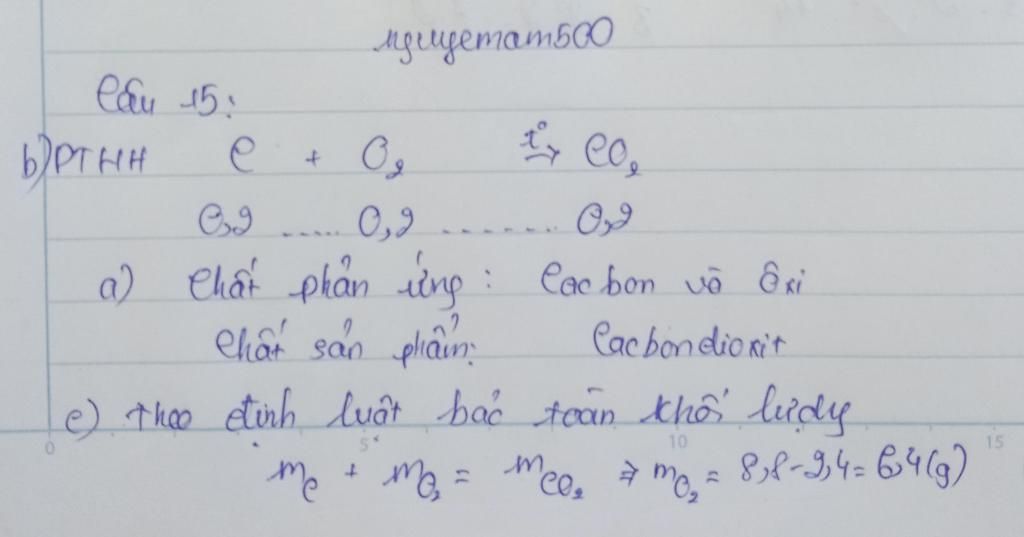 nguyemam500
Câu 15:
b) PTHH C + O₂ t°→ CO₂
0,2 ..... 0,2 ....... 0,2
a) Chất phản ứng : Cacbon và Ôxi
Chất sản phẩm: Cacbondioxit
c) theo định luật bảo toàn khối lượng
0 5 10 15
m_C + m_O₂ = m_CO₂ ⇒ m_O₂ = 8,8-2,4= 6,4(g)